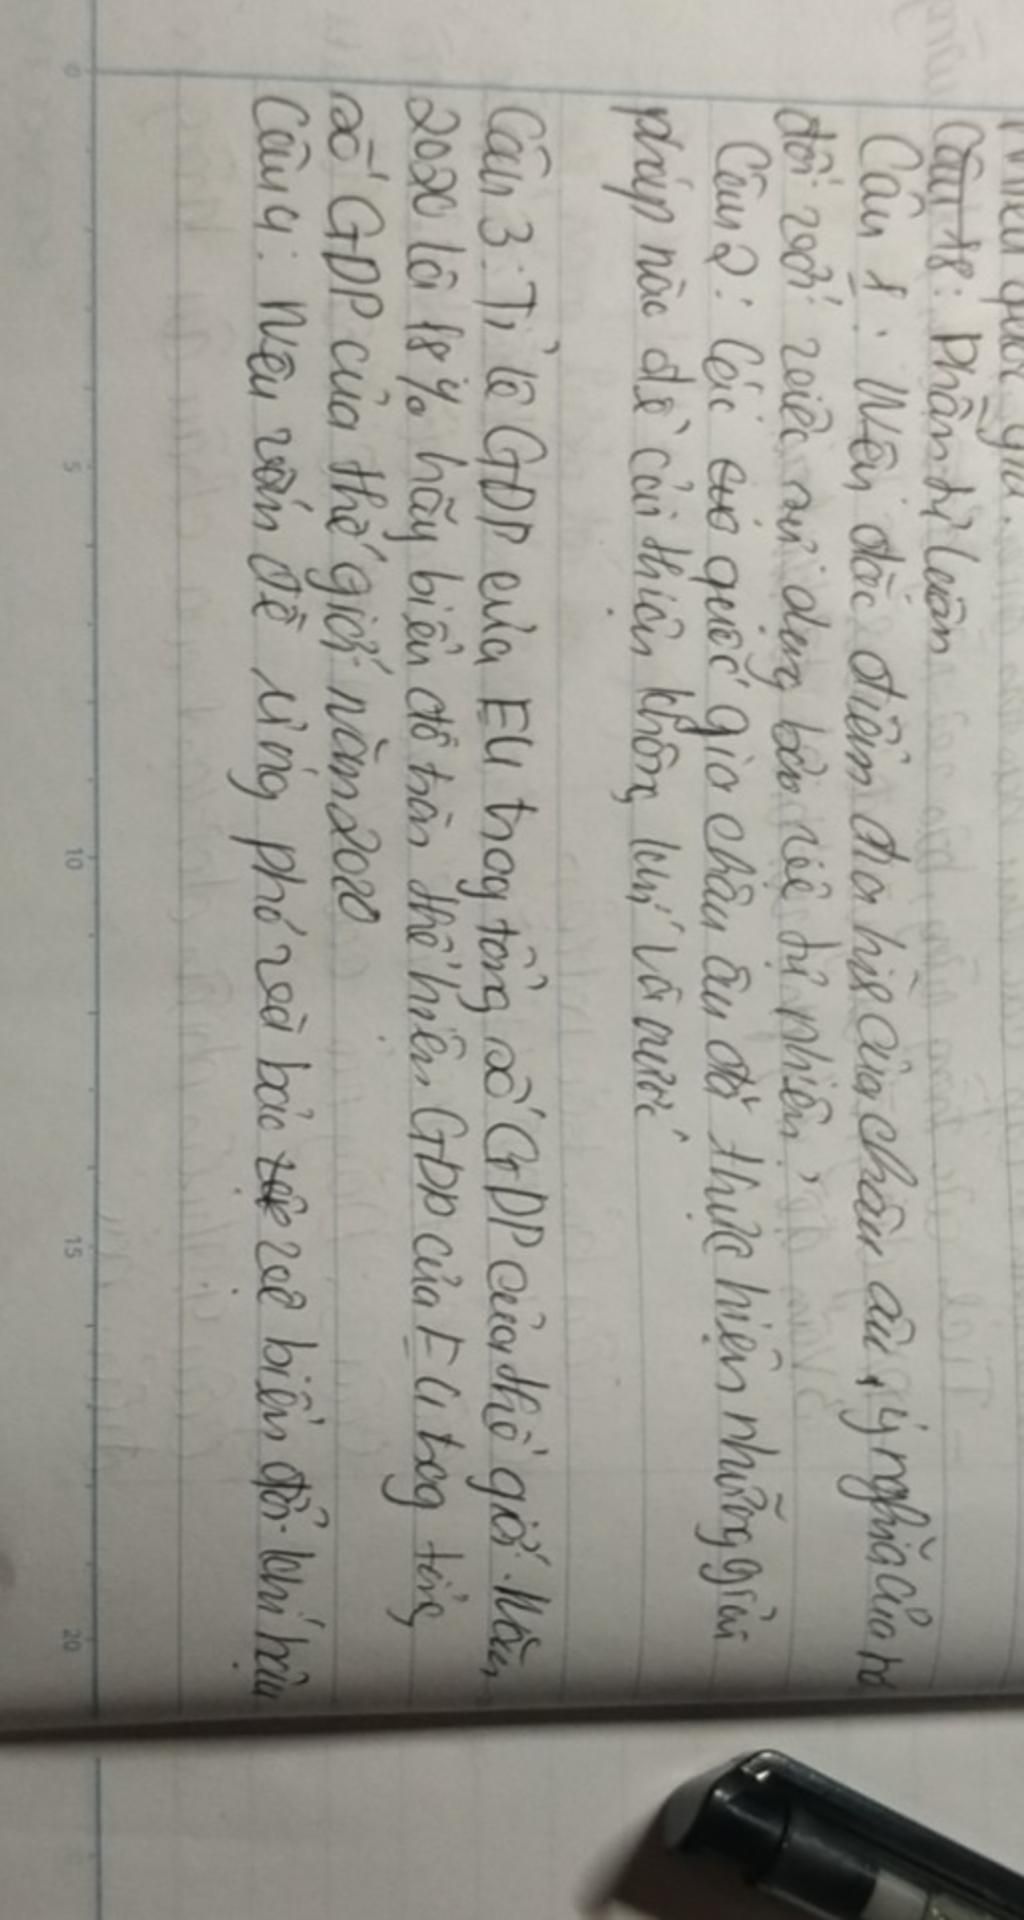 Câu 18: Phần tự luận
Câu 1: Nêu đặc điểm địa hình của châu âu, ý nghĩa của nó
đối với việc sử dụng bảo vệ tự nhiên,
Câu 2: Các cuả quốc gia châu âu đã thực hiện những giải
pháp nào để cải thiện không khí và nước
Câu 3: Tỉ lệ GDP của EU trong tổng số GDP của thế giới. Năm
2020 là 18% hãy biểu đồ tròn thể hiện GDP của EU trog tổng
số GDP của thế giới năm 2020
Câu 4: Nêu vấn đề ứng phó với bảo vệ biến đổi khí hậu
0
5
10
15
20